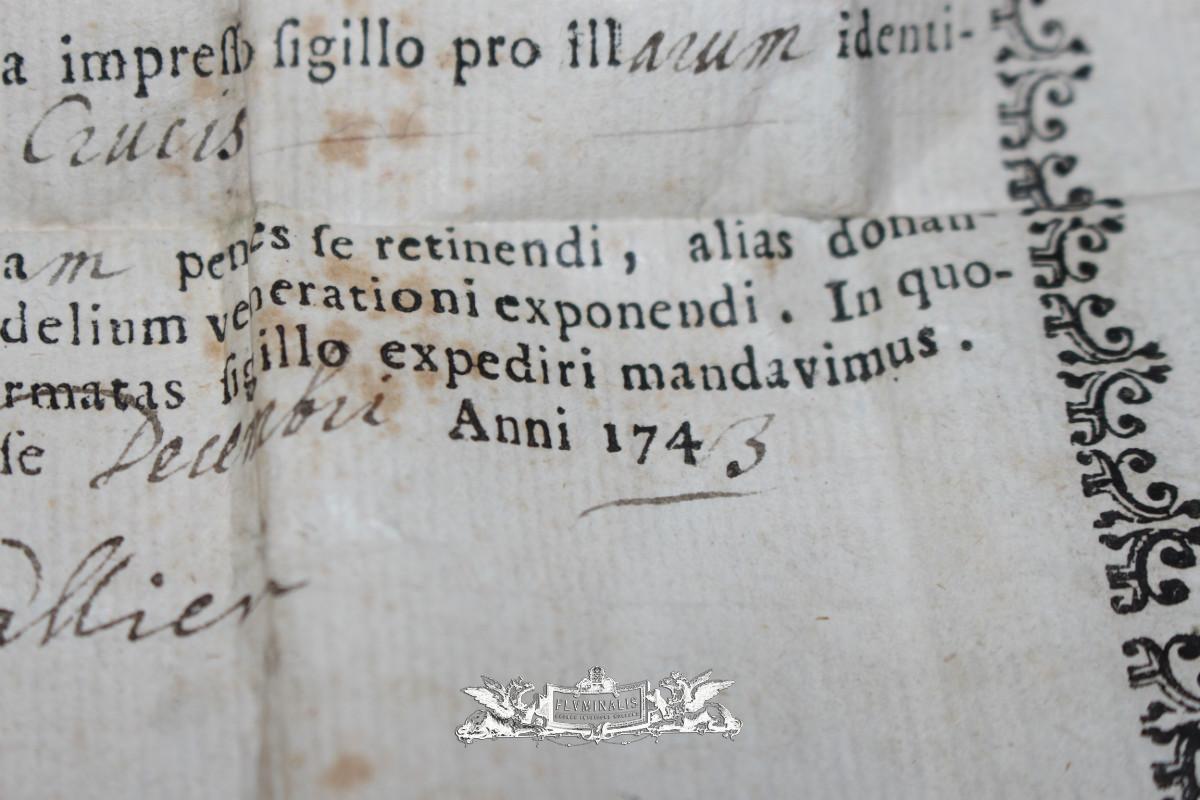 a impresso sigillo pro illarum identi-
Crucis
am penes se retinendi, alias donan-
delium venerationi exponendi. In quo-
rmatas sigillo expediri mandavimus.
se Decembri Anni 1743
allier
FLVMINALIS